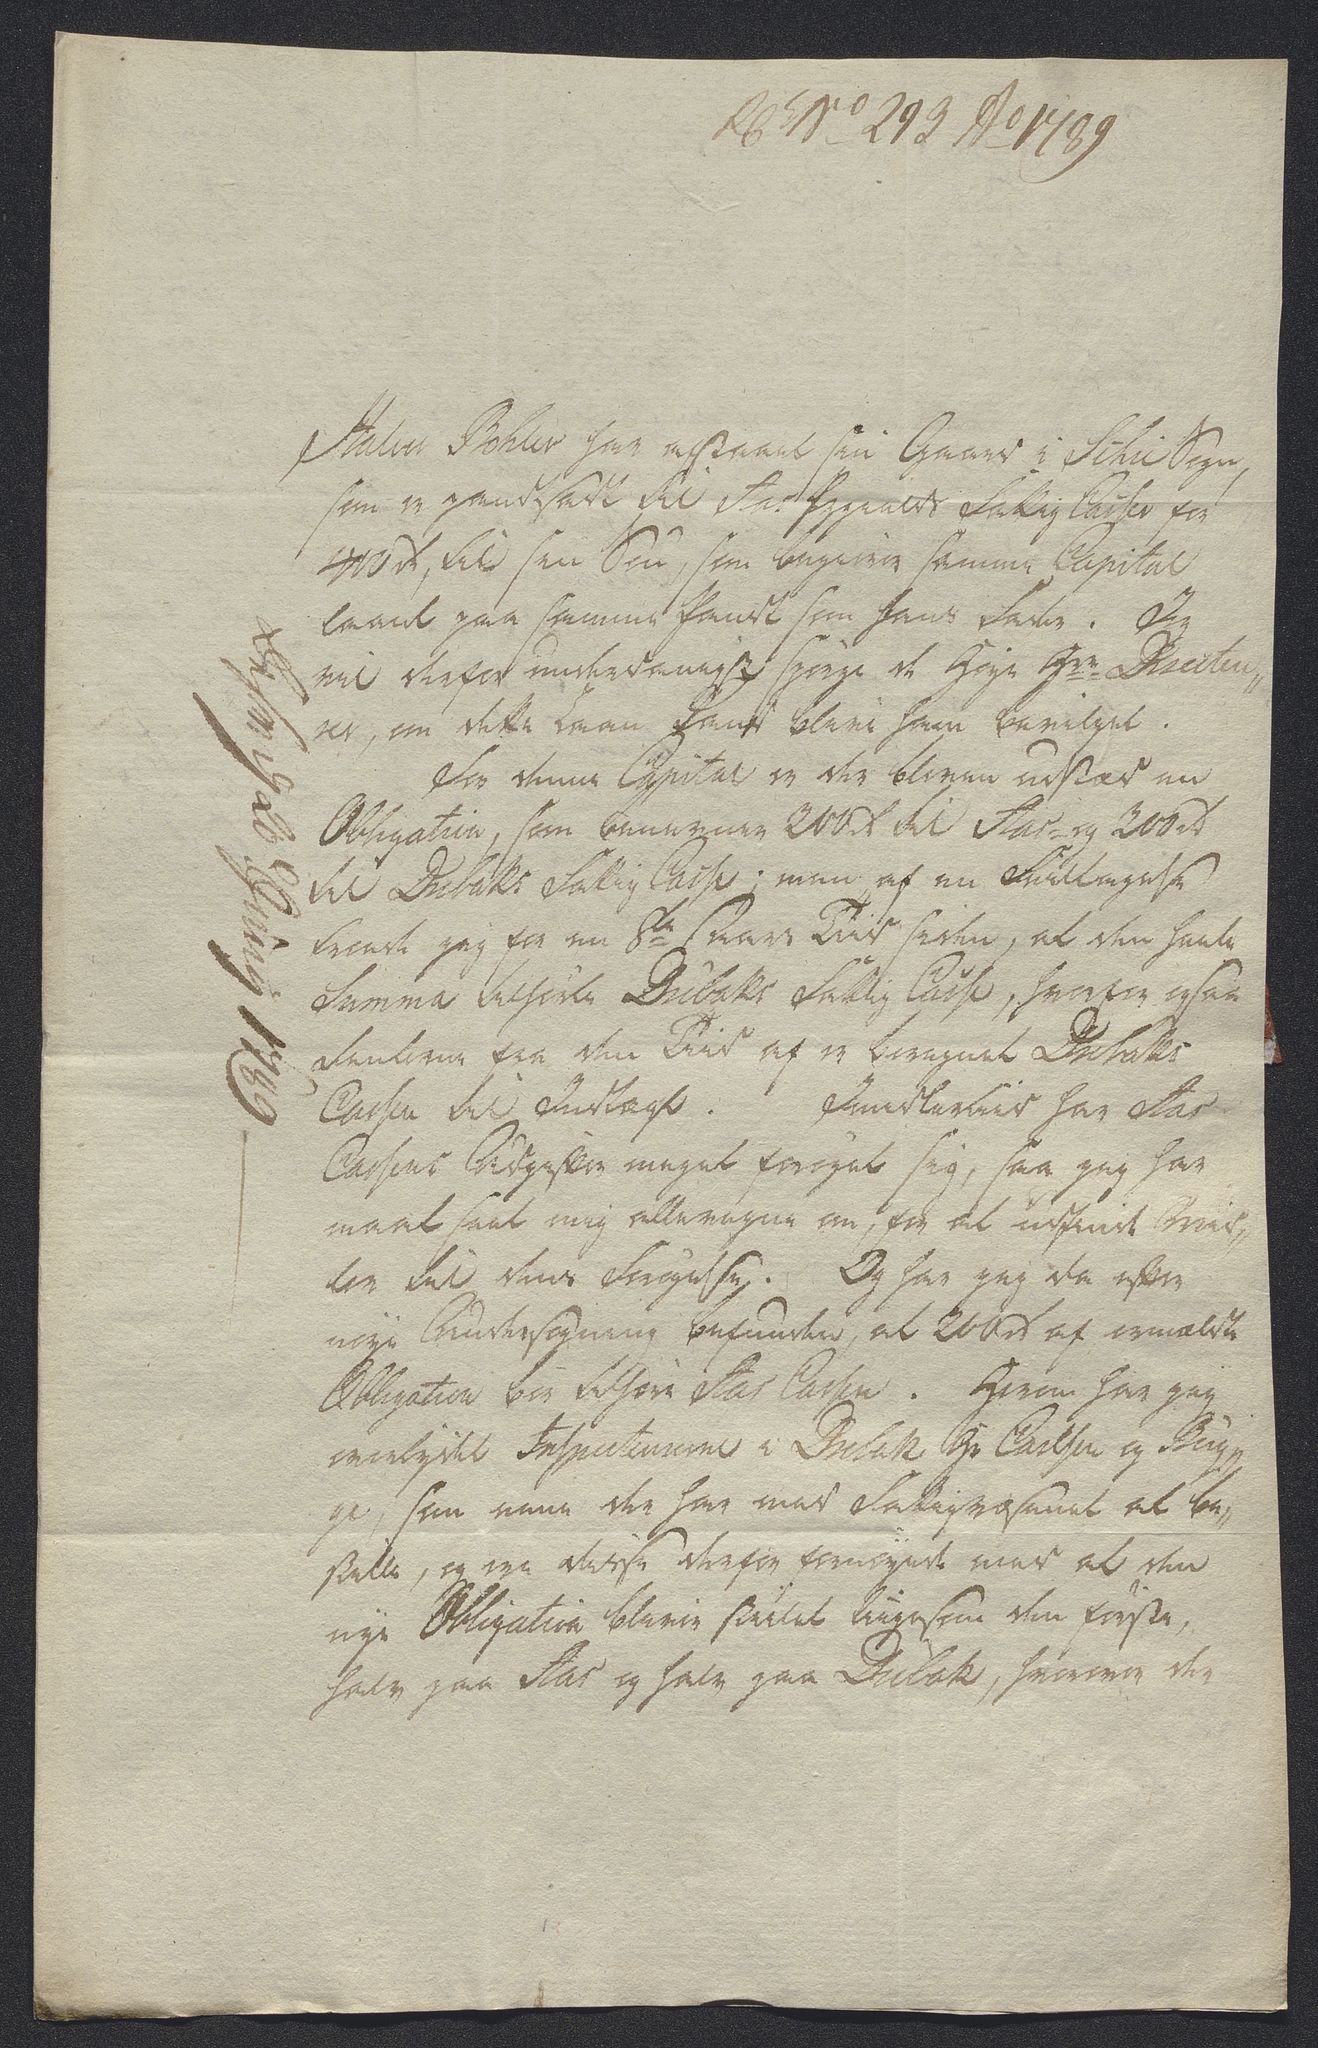 No 293 Ao 1789
Halvor Bohler har afstaaet sin Gaard i Schie Sogn,
som er pandsadt til Aas Præsteg. Fattig Casse for
400 rd, til sin Søn, som begierer samme Capital
laant paa samme Pandt som hans Fader. Jeg
vil derfor underdanigst spørge de Høye Hrr. Directeu„
rer, om dette Laan kand blive ham bevilget.
For denne Capital er der bleven udstæd en
Obligation, som benævner 200 rd til Aas- og 200 rd
til Drøbaks Fattig Casse; men af en Feiltagelse
troede jeg for en 8te Aars Tiid siden, at den heele
Summa tilhørte Drøbaks Fattig Casse, hvorfor ogsaa
Renterne fra den Tiid af er beregnet Drøbaks
Cassen til Indtægt. Imidlertiid har Aas
Cassens Udgifter meget forøget sig, saa jeg har
maat seet mig allevegne om, for at udfinde Mid„
ler til dens Forøgelse. Og har jeg da efter
nøye Undersøgning befunden, at 200 rd af ermældte
Obligation bør tilhøre Aas Casse. Herom har jeg
overtydet Inspecteurerne i Drøbak Hr Carlsen og Bug„
ge, som ene der har med Fattigvæsenet at be„
stille, og ere disse derfor fornøyede med at den
nye Obligation bliver stiilet liigesom den første,
halv paa Aas og halv paa Drøbak, hvorover der
28 Junij 1789